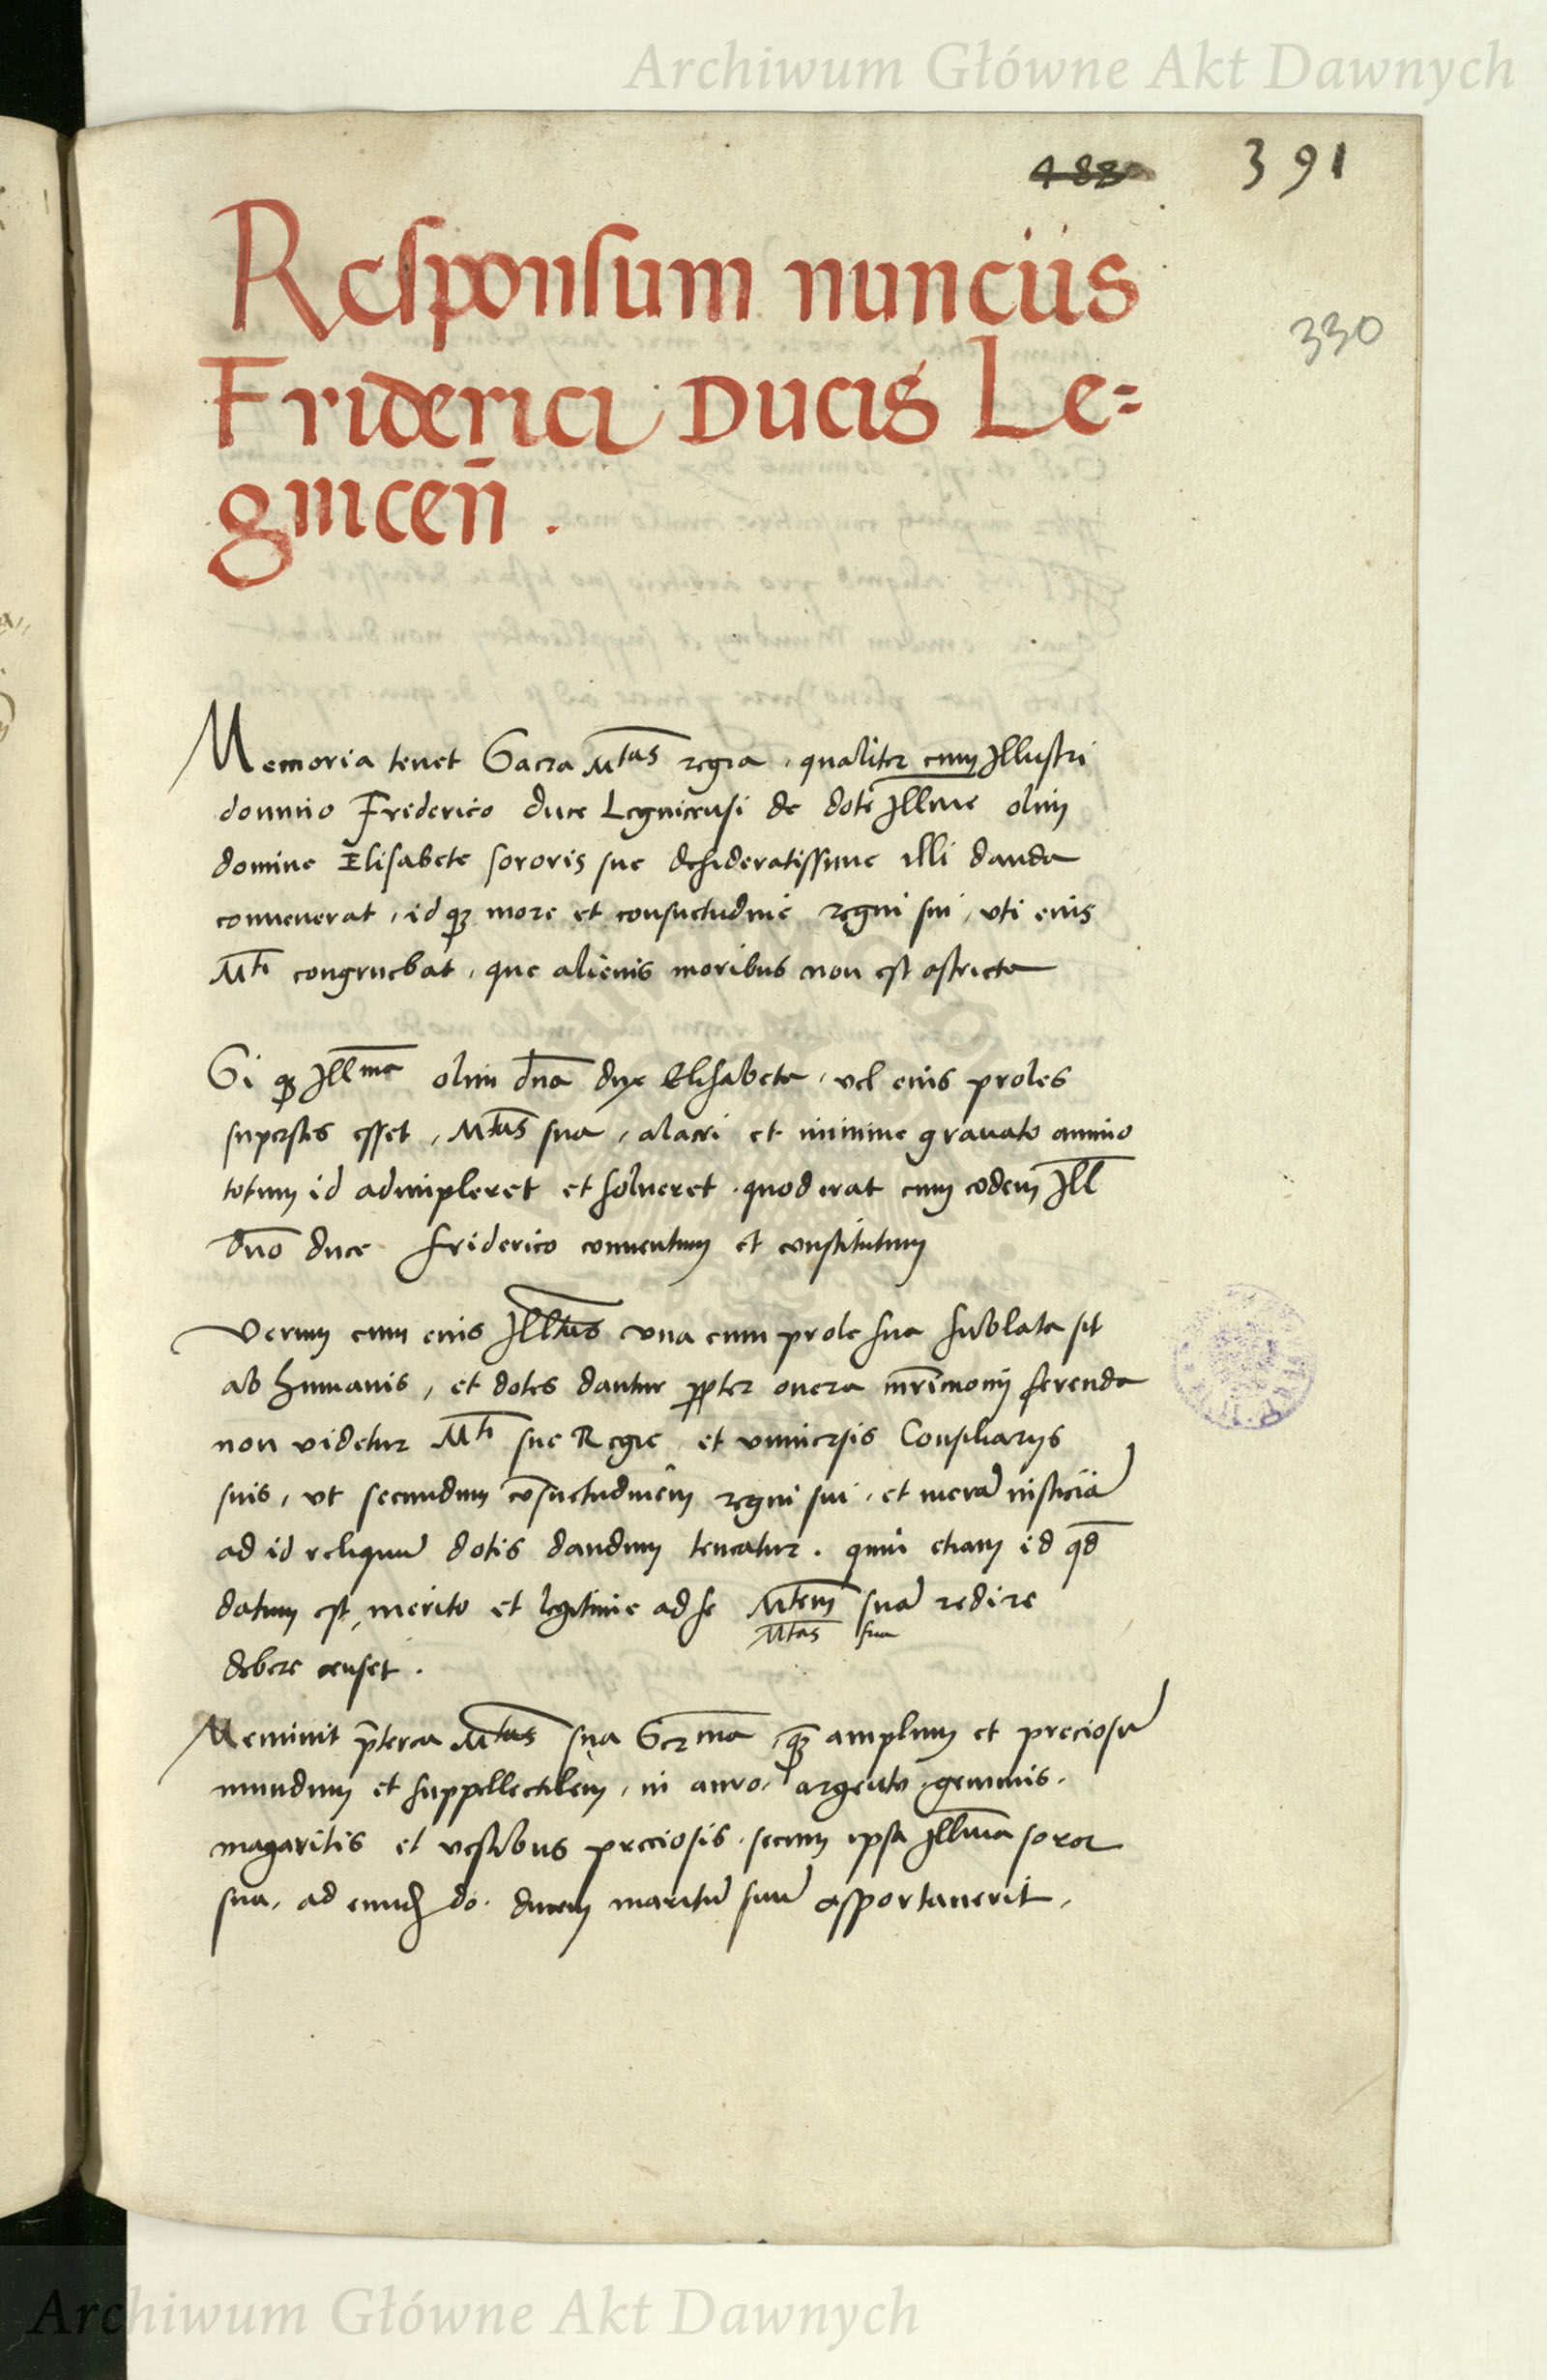 Archiwum Główne Akt Dawnych
488 391
Responsum nunciis
330
Friderici Ducis Le=
gnicen̄ .
Memoria tenet Sacra Mtas regia, qualiter cum Illustri
domino Friderico duce Legnicensi de dote Illme olim
domine Elisabete sororis sue desideratissime illi danda
convenerat, id qz more et consuetudine regni sui, uti eius
Mti congruebat, que alienis moribus non est astricta
Si qz Illma olim dna dux Elisabeta, vel eius proles
superstes esset, Mtas sua, alacri et minime gravato animo
totum id adimpleret et solveret, quod erat cum eodem Ill
dno duce Friderico conventum et constitutum
Verum cum eius Illtas una cum prole sua sublata sit
ab humanis, et dotes dantur propter onera mrimonij ferenda
non videtur Mti sue Regie, et universis Consiliarijs
suis, ut secundum cōsuetudinem regni sui, et merā iusticiā
ad id reliquū dotis dandum teneatur. quin etiam id qd
datum est, merito et legitime ad se Mtem suā redire
Mtas sua
debere censet.
Meminit p̄terea Mtas sua Serma, qz amplum et preciosū
mundum et suppellectilem, in auro, argento, gemmis,
magaritis et vestibus preciosis, secum ipsa Illma soror
sua, ad eundē do. ducem maritū suū asportaverit,
Archiwum Główne Akt Dawnych